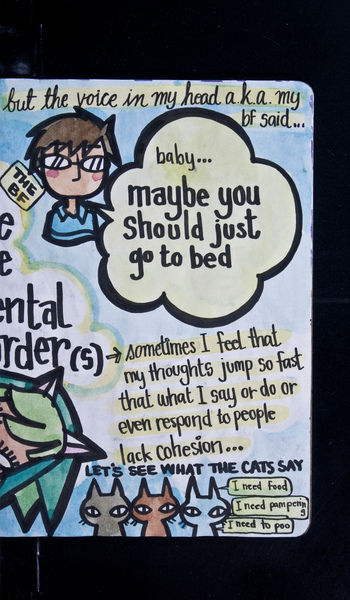 but the voice in my head a.k.a. my
bf said...
THE
BF
baby...
maybe you
should just
go to bed
e
e
ental
order(s) →
sometimes I feel that
my thoughts jump so fast
that what I say or do or
even respond to people
lack cohesion...
LET'S SEE WHAT THE CATS SAY
I need food
I need pampering
I need to poo